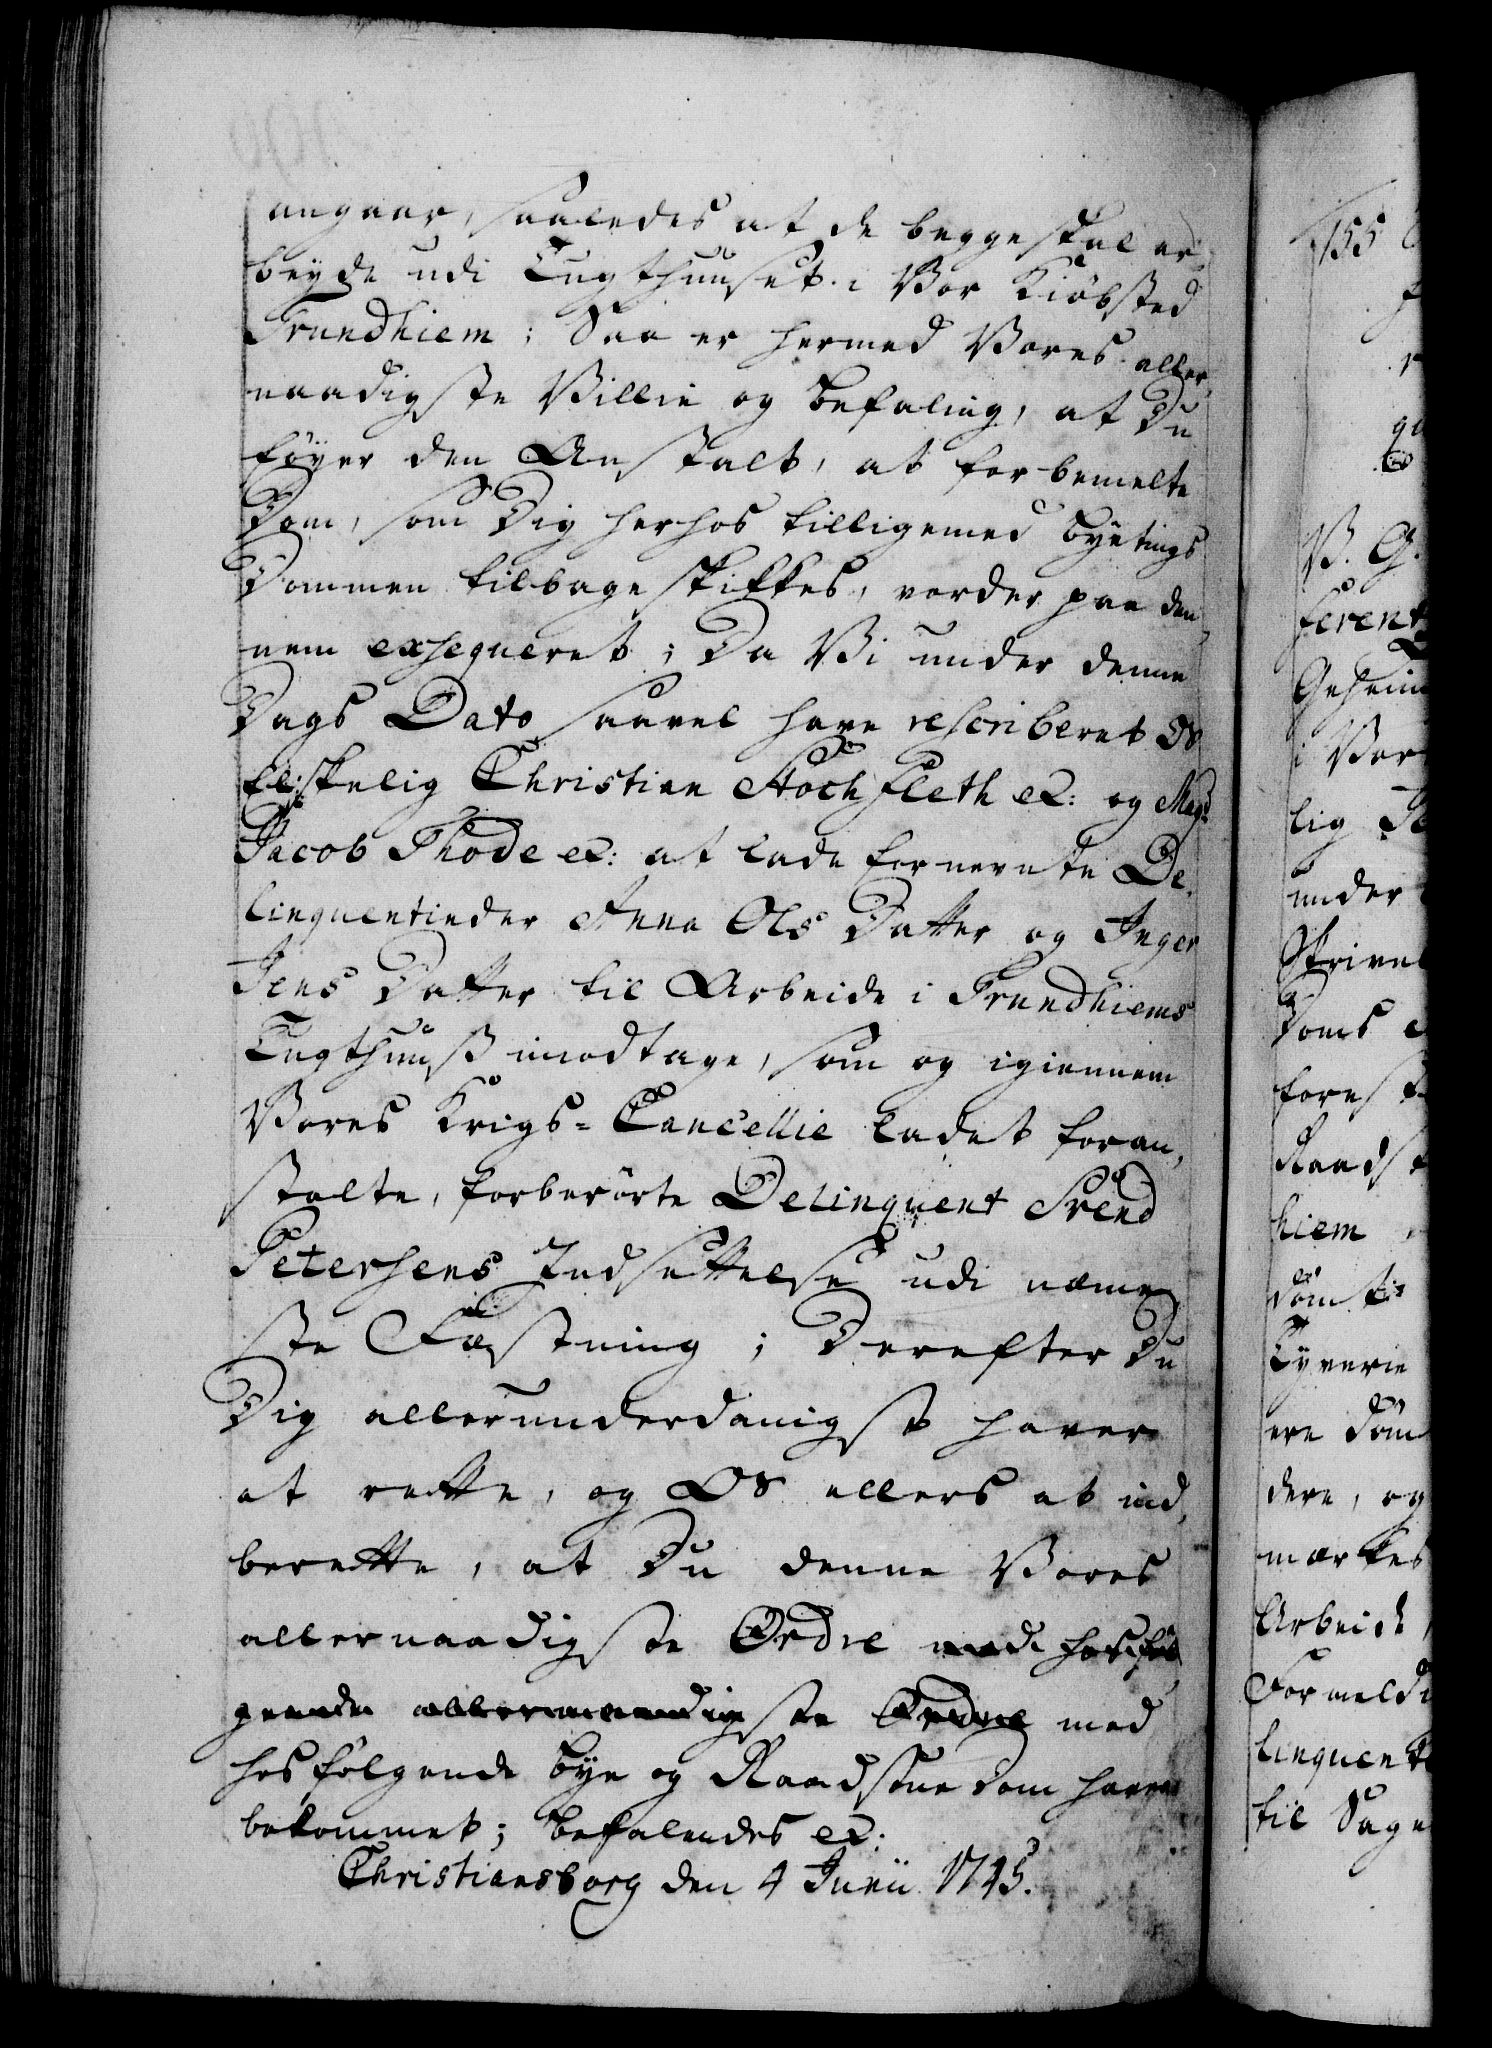 angaar, saaledes at de begge skal ar,
beyde udi Tugthuuset i Vor Kiøbsted
Trundhiem; Saa er hermed Vores aller,
naadigste Villie og Befaling, at Du
føyer den Anstalt, at forbemelte
Dom, som Dig herhos tilligemed Byetings
Dommen tilbage skikkes, vorder paa den,
nem exseqveret; Da Vi under denne
Dags Dato saavel have rescriberet Os
Elskelig Christian Stochfleth etc: og Magr
Jacob Thode etc: at lade fornevnte De,
linquentinder Anna Ols Datter og Inger
Jens Datter til Arbeide i Trundhiems
Tugthuuß imodtage, som og igiennem
Vores Krigs-Cancellie ladet foran,
stalte, forberørte Delinquent Svend
Petersens Indsettelse udi næme,
ste Fæstning; Derefter Du
Dig allerunderdanigst haver
at rette, og Os ellers at ind,
berette, at Du denne Vores
allernaadigste Ordre med hosføl,
gende allernaadigste Ordre med
hosfølgende Bye og Raadstue Dom haver
bekommet; Befalendes etc:
Christiansborg den 4 Junii 1745.
155
V. G.
ferent
Geheim
i Vor
lig
under
Skrivel
Doms
forest
Raadst
hiem
dømt
Tyverie
ere døm
dere, og
mærkes
Arbeide,
Formeldi
linquent
til Sage